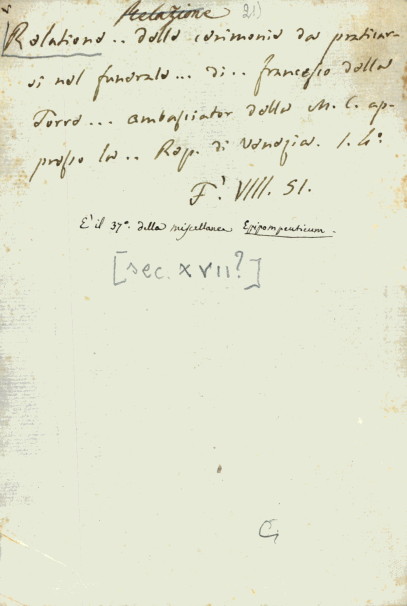 Relazione 21)
Relatione.. delle cerimonie da praticar-
si nel funerale... di.. francesco della
Torre... ambasciator della M. C. ap-
presso la.. Rep. di Venezia. 1. 4°
F. VIII. 51.
È il 37°. della miscellanea Epipompeuticum.
[sec. XVII?]